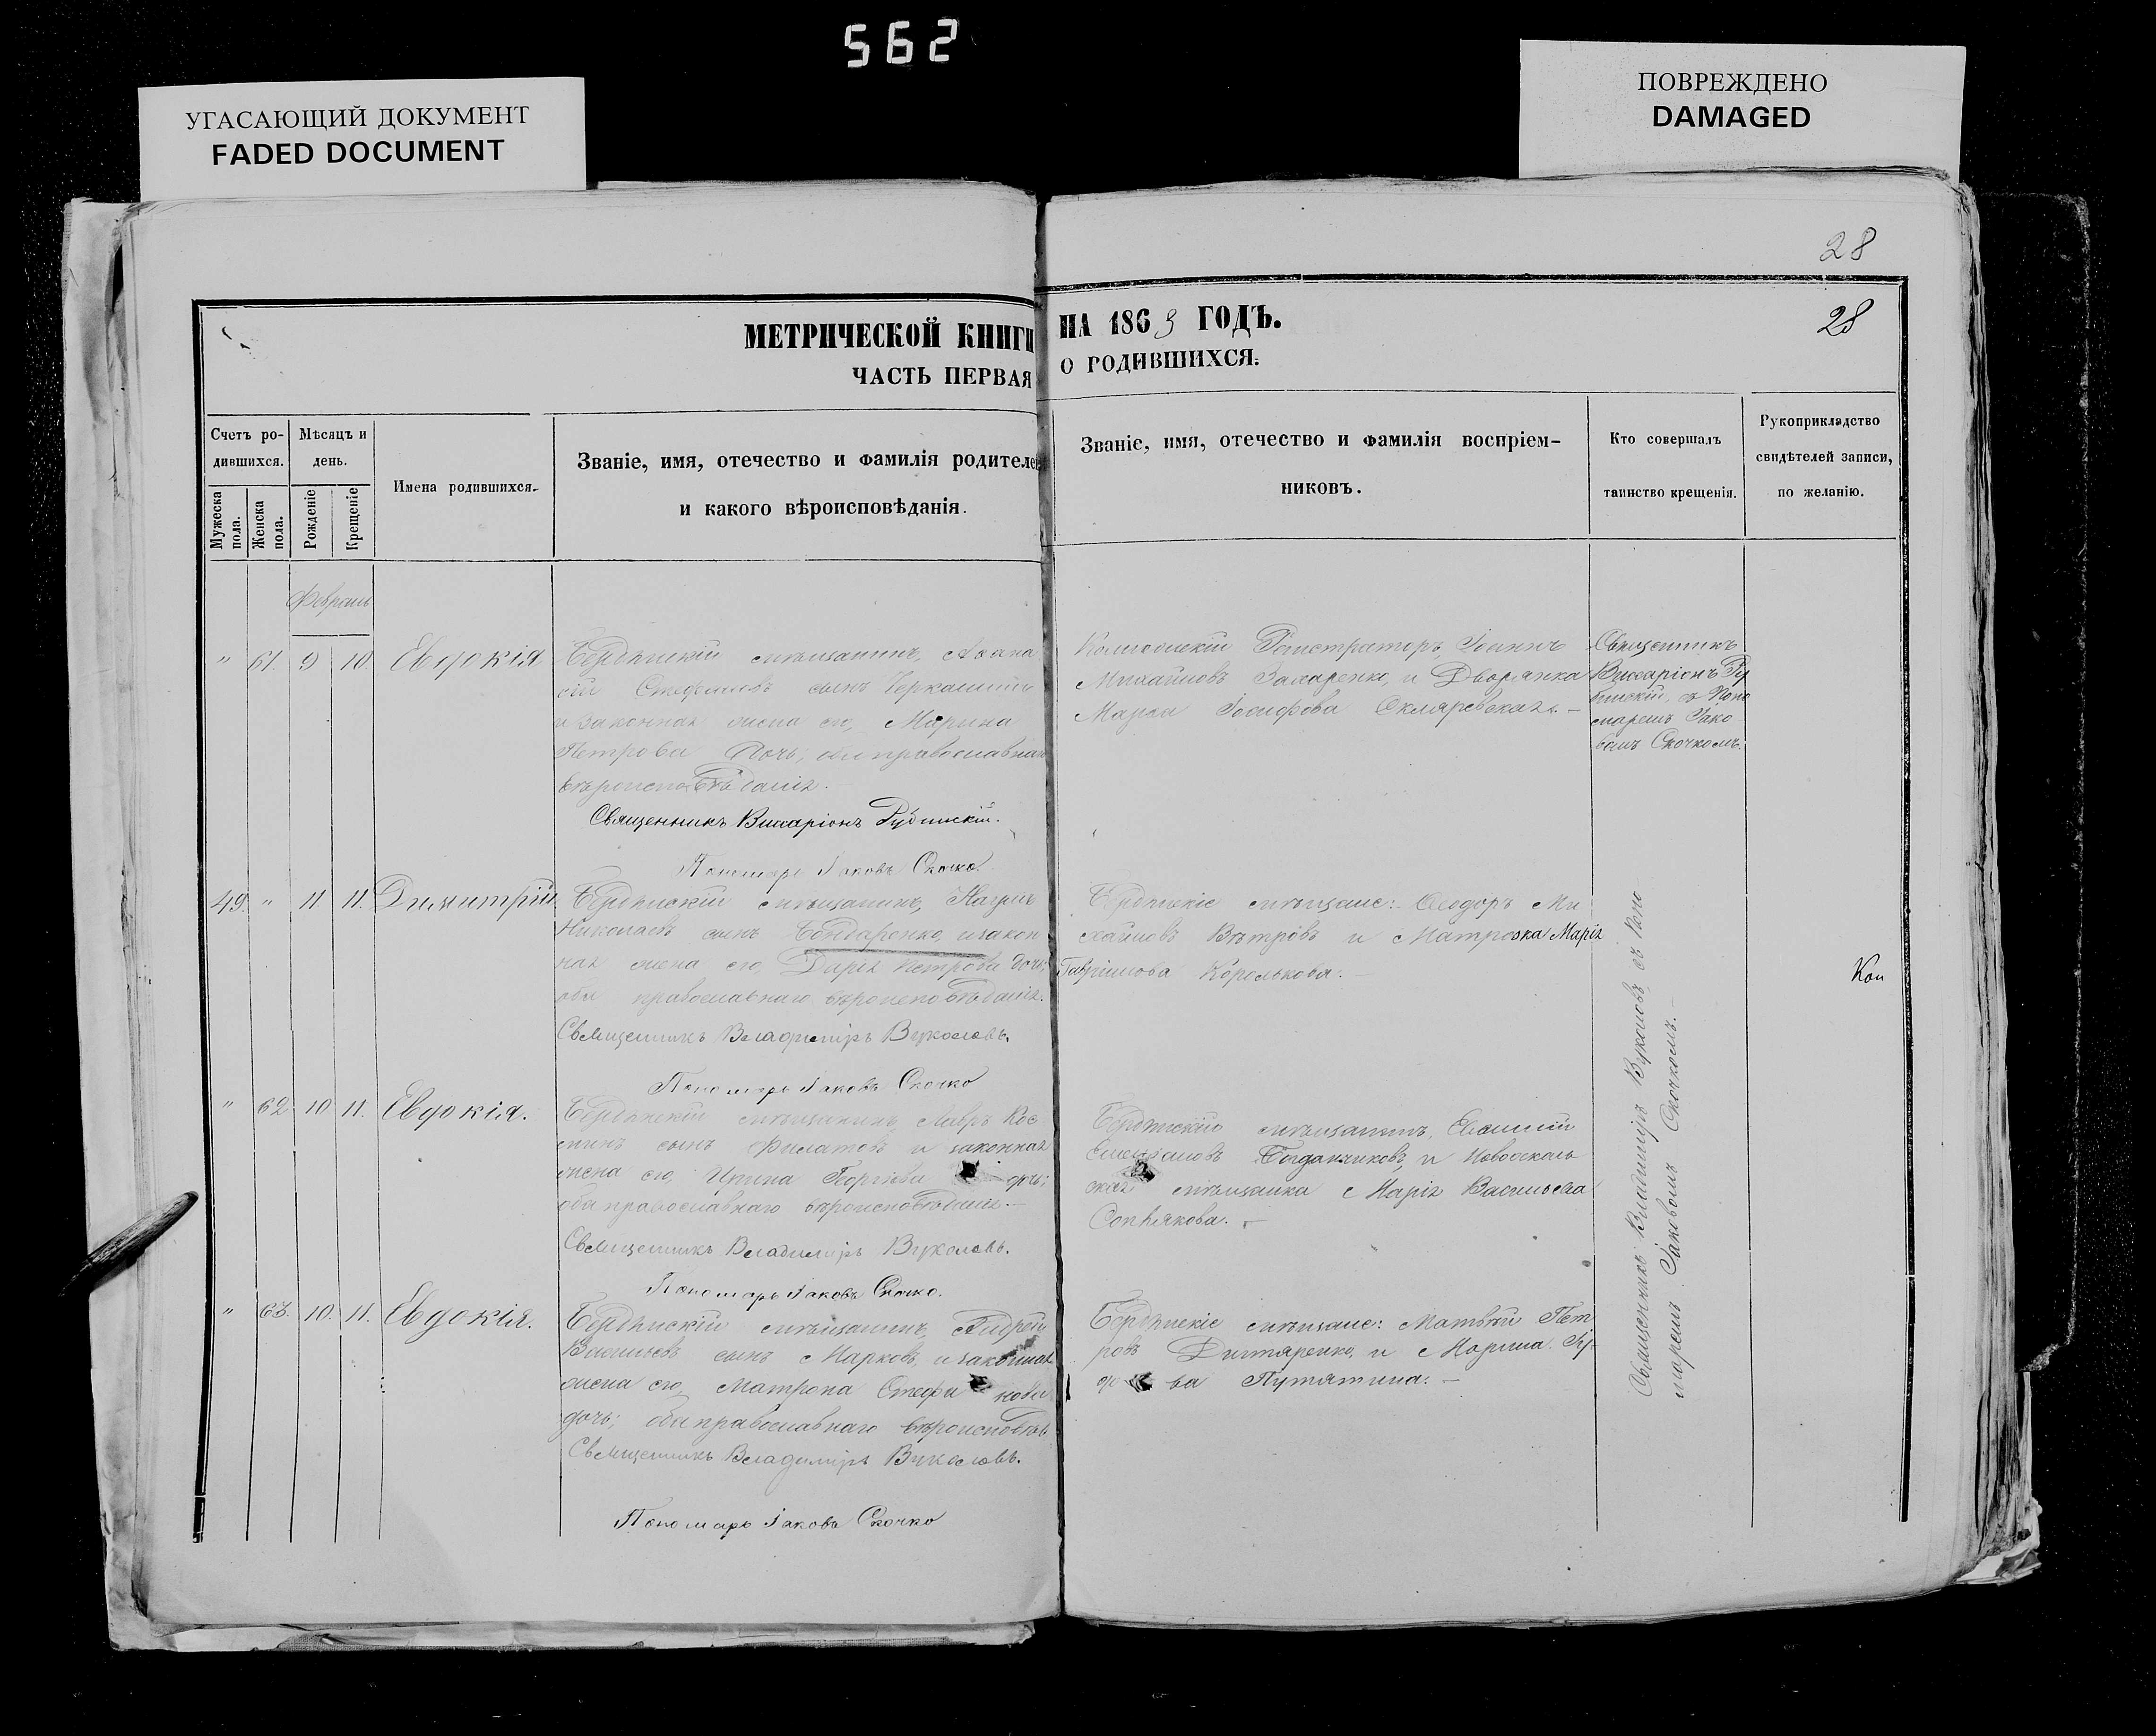 562
УГАСАЮЩИЙ ДОКУМЕНТ
FADED DOCUMENT
ПОВРЕЖДЕНО
DAMAGED
28
28
МЕТРИЧЕСКОЙ КНИГИ НА 1863 ГОДЪ.
ЧАСТЬ ПЕРВАЯ О РОДИВШИХСЯ.
Счетъ ро-
дившихся.
Мужеска
пола.
Женска
пола.
Мѣсяцъ и
день.
Рожденіе
Крещеніе
Имена родившихся.
Званіе, имя, отечество и фамилія родителей
и какого вѣроисповѣданія.
Званіе, имя, отечество и фамилія воспріем-
никовъ.
Кто совершалъ
таинство крещенія.
Рукоприкладство
свидѣтелей записи,
по желанію.
Февраль
" 61. 9 10 Евдокія
Бердянскій мѣщанинъ, Аѳана
сій Стефановъ сынъ
и законная жена его, Марина
Петрова дочь; оба православнаго
вѣроисповѣданія.
Священникъ Виссаріонъ
Пономарь Іаковъ Скочко.
Регистраторъ Іоаннъ
Михайловъ Захаренко, и Дворянка
Марѳа Іосифова Скляревская. —
Священникъ
Виссаріонъ
съ Поно
маремъ Іако
вомъ Скочкомъ.
49. " 11. 11. Димитрій
Бердянскій мѣщанинъ,
Николаевъ сынъ Бондаренко, и закон
ная жена его, Дарія Петрова дочь;
оба православнаго вѣроисповѣданія.
Священникъ Владиміръ Вуколовъ.
Пономарь Іаковъ Скочко
Бердянскіе мѣщане: Ѳеодоръ Ми
хайловъ Вѣтровъ и Матроска Марія
Гавріилова Королькова. —
Коп
" 62 10 11. Евдокія.
Бердянскій мѣщанинъ,
сынъ Филатовъ и законная
жена его, Ирина Георгіева дочь;
оба православнаго вѣроисповѣданія. —
Священникъ Владиміръ Вуколовъ.
Пономарь Іаковъ Скочко.
Бердянскій мѣщанинъ, Евѳимій
Богданчиковъ, и Новооскольская
мѣщанка Марія Васильева
Сопѣлкова. —
" 63. 10. 11. Евдокія.
Бердянскій мѣщанинъ, Андрей
Васильевъ сынъ Марковъ, и законная
жена его, Матрона Стефанова
дочь; оба православнаго вѣроисповѣд.
Священникъ Владиміръ Вуколовъ.
Пономарь Іаковъ Скочко
Бердянскіе мѣщане: Матвѣй Пет
ровъ и Марина
ва Путятина. —
Священникъ Владиміръ Вуколовъ съ Поно
маремъ Іаковомъ Скочкомъ. —